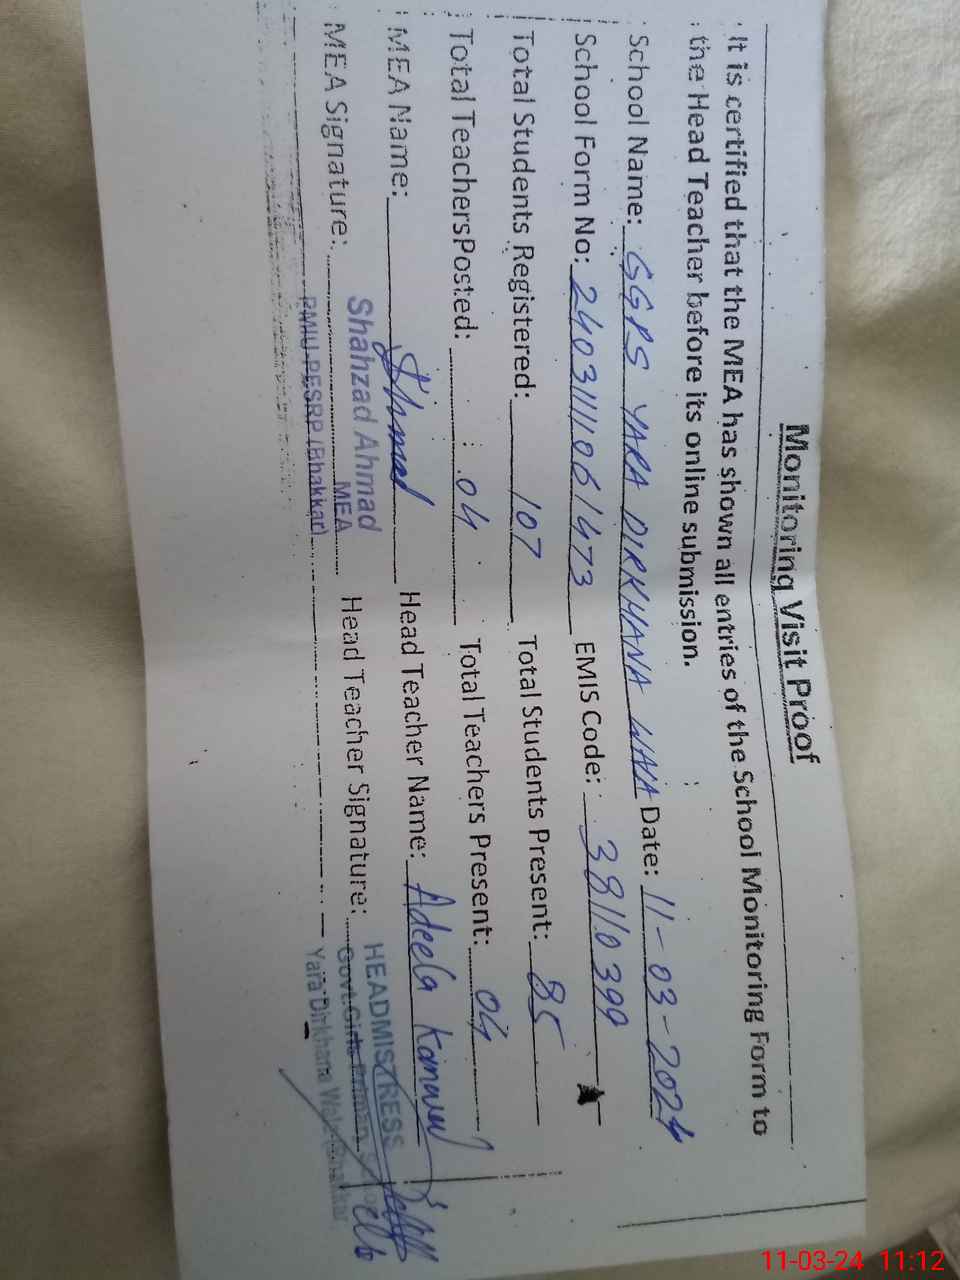 Monitoring Visit Proof
It is certified that the MEA has shown all entries of the School Monitoring Form to
the Head Teacher before its online submission.
School Name: GGPS YARA DIRKHANA WALA Date: 11-03-2024
School Form No: 2403111061473 EMIS Code: 38110399
Total Students Registered: 107 Total Students Present: 85
Total TeachersPosted: 04 Total Teachers Present: 04
MEA Name: Ahmad Head Teacher Name: Adeela Kanwal
MEA Signature: Head Teacher Signature:
Shahzad Ahmad
MEA
PMIU-PESRP (Bhakkar)
HEADMISTRESS
Govt. Girls Primary School
Yara Dirkhana Wala (Bhakkar)
11-03-24 11:12